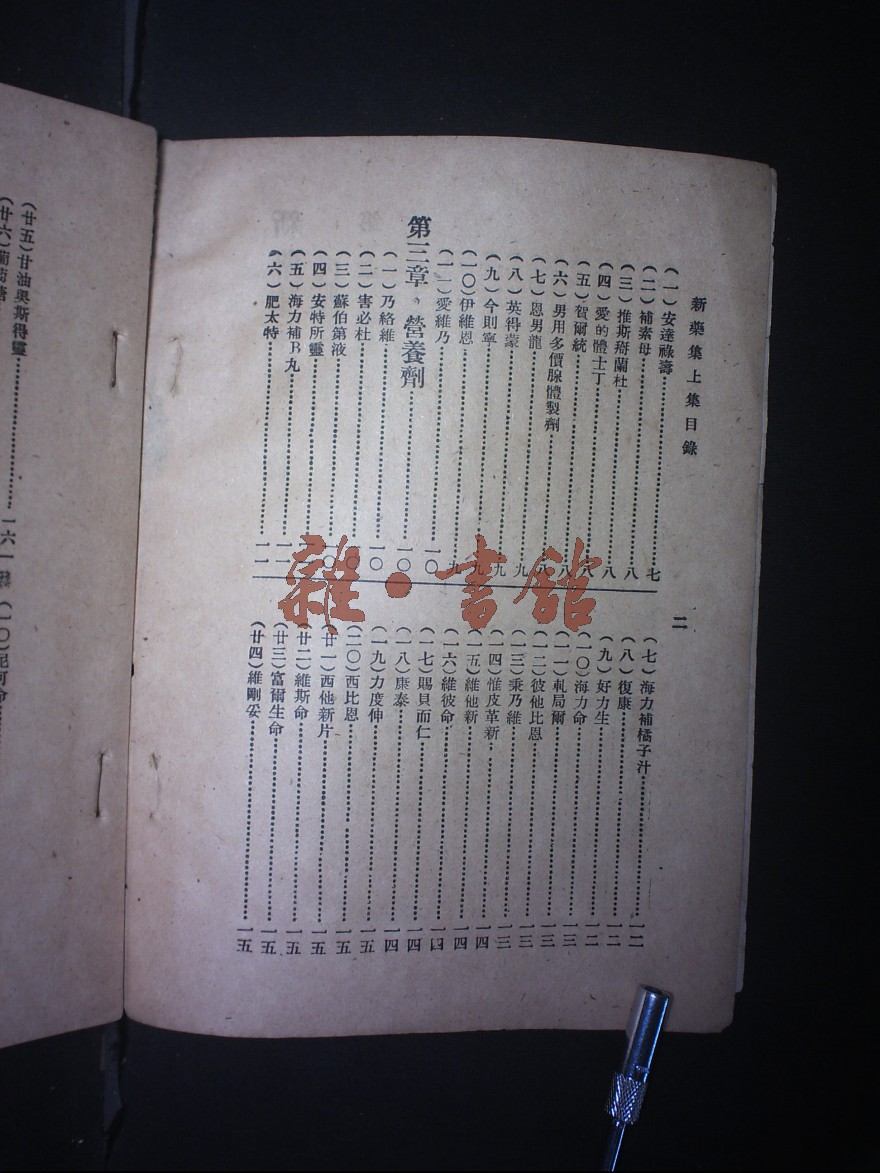 新藥集上集目錄
二
(一)安達祿壽……七
(二)補素母……八
(三)推斯搿蘭杜……八
(四)愛的體士丁……八
(五)賀爾統……八
(六)男用多價腺體製劑……八
(七)恩男龍……八
(八)英得蒙……九
(九)今則寧……九
(一〇)伊維恩……九
(一一)愛維乃……一〇
第三章、營養劑……一〇
(一)乃絡維……一〇
(二)害必杜……一〇
(三)蘇伯第液……一〇
(四)安特所靈……一一
(五)海力補B丸……一一
(六)肥太特……一一
(七)海力補橘子汁……一二
(八)復康……一二
(九)好力生……一二
(一〇)海力命……一三
(一一)軋局爾……一三
(一二)彼他比恩……一三
(一三)乘乃維……一三
(一四)惟皮革新……一四
(一五)維他新……一四
(一六)維彼命……一四
(一七)賜貝而仁……一四
(一八)康泰……一四
(一九)力度伸……一五
(二〇)西比恩……一五
(廿一)西他新片……一五
(廿二)維斯命……一五
(廿三)富爾生命……一五
(廿四)維剛妥……一五
(廿五)甘油奧斯得靈……一六
(廿六)葡萄糖
雜·書館